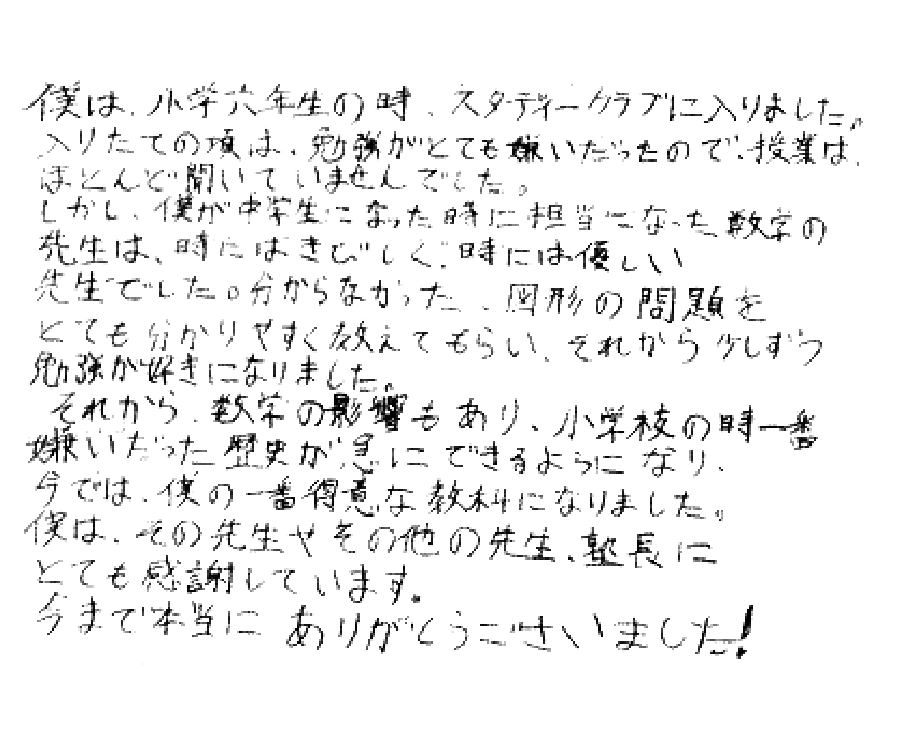 僕は、小学六年生の時、スタディークラブに入りました。
入りたての頃は、勉強がとても嫌いだったので、授業は、
ほとんど聞いていませんでした。
しかし、僕が中学生になった時に担当になった数学の
先生は、時にはきびしく、時には優しい
先生でした。分からなかった、図形の問題を
とても分かりやすく教えてもらい、それから少しずつ
勉強が好きになりました。
それから、数学の影響もあり、小学校の時一番
嫌いだった歴史が急にできるようになり、
今では、僕の一番得意な教科になりました。
僕は、その先生やその他の先生、塾長に
とても感謝しています。
今まで本当にありがとうございました!